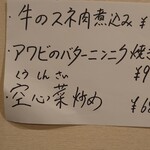 ・牛のスネ肉煮込み ¥
・アワビのバターニンニク焼き
¥9
くうしんさい
・空心菜炒め
¥68